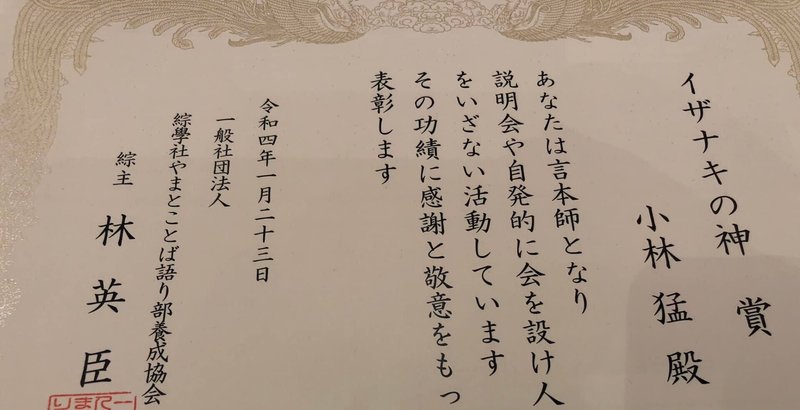 イザナキの神 賞
小林 猛 殿
あなたは言本師となり
説明会や自発的に会を設け人
をいざない活動しています
その功績に感謝と敬意をもっ
表彰します
令和四年一月二十三日
一般社団法人
綜學社やまとことば語り部養成協会
綜主 林 英 臣